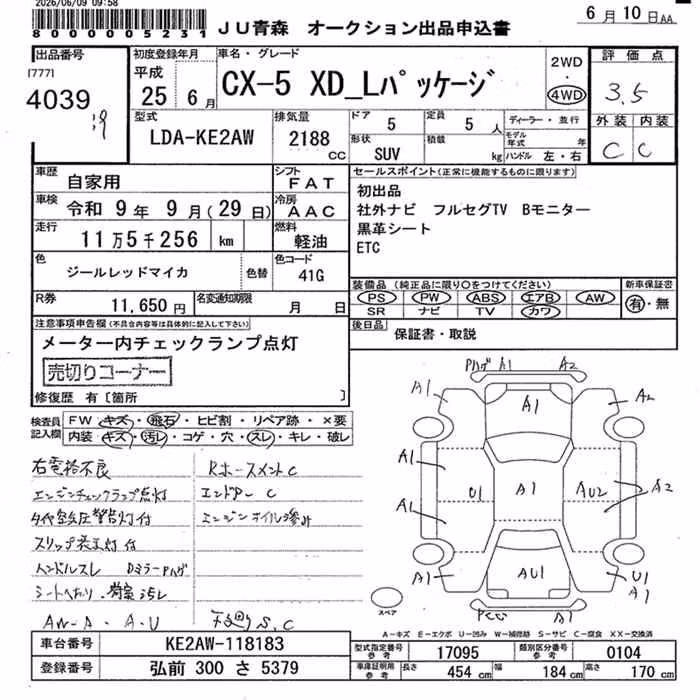 2026/06/09 09:58
80000005231
JU青森 オークション出品申込書
6月10日AA
出品番号
[777]
4039
初度登録年月
平成
25 6月
車名・グレード
CX-5 XD_Lパッケージ
2WD
・
4WD
評価点
3.5
外装 内装
C C
型式
LDA-KE2AW
排気量
2188 cc
ドア 5
定員 5 人
形状 SUV
積載 kg
ディーラー・並行
モデル年式 年
ハンドル 左・右
車歴 自家用
シフト FAT
車検 令和 9年 9月(29日)
冷房 AAC
走行 11万5千256 km
燃料 軽油
色 ジールレッドマイカ
色替
色コード 41G
R券 11,650円
名変通知期限 月 日
セールスポイント(正常に機能するものに限ります)
初出品
社外ナビ フルセグTV Bモニター
黒革シート
ETC
装備品 (純正品に限り〇をつけてください)
PS PW ABS エアB AW
SR ナビ TV カワ
新車保証書
有・無
後日品 保証書・取説
注意事項申告欄(不具合内容等は具体的に記入して下さい)
メーター内チェックランプ点灯
売切りコーナー
修復歴 有〔箇所 〕
検査員記入欄
FW・キズ・飛石・ヒビ割・リペア跡・×要
内装・キズ・汚レ・コゲ・穴・スレ・キレ・破レ
右電格不良
エンジンチェックランプ点灯
タイヤ空気圧警告灯付
スリップ表示灯付
ハンドルスレ DミラーPハゲ
シートヘタリ、荷室汚レ
AW-A・A・U
RホースメントC
エンドP C
エンジンオイル滲み
下廻りS.C
Pハゲ A1 A2
A1 A1 A2
A1 U1 A1 AU2 A2
A1
A1 AU1 U1
A1
PCC A1
スペア
A-キズ E-エクボ U-凹み W-補修跡 S-サビ C-腐食 XX-交換済
車台番号 KE2AW-118183
登録番号 弘前 300 さ 5379
型式指定番号 参考 17095
類別区分番号 参考 0104
車庫証明用 参考 長さ 454 cm 幅 184 cm 高さ 170 cm